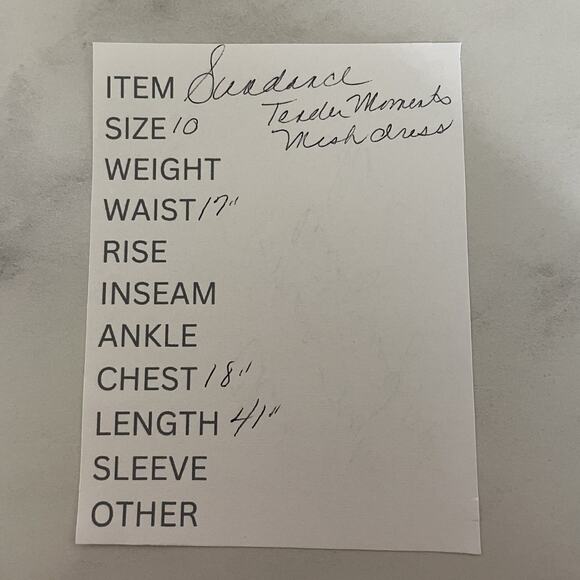 ITEM Sundance
Tender Moments
SIZE 10
Mesh dress
WEIGHT
WAIST 17"
RISE
INSEAM
ANKLE
CHEST 18"
LENGTH 41"
SLEEVE
OTHER